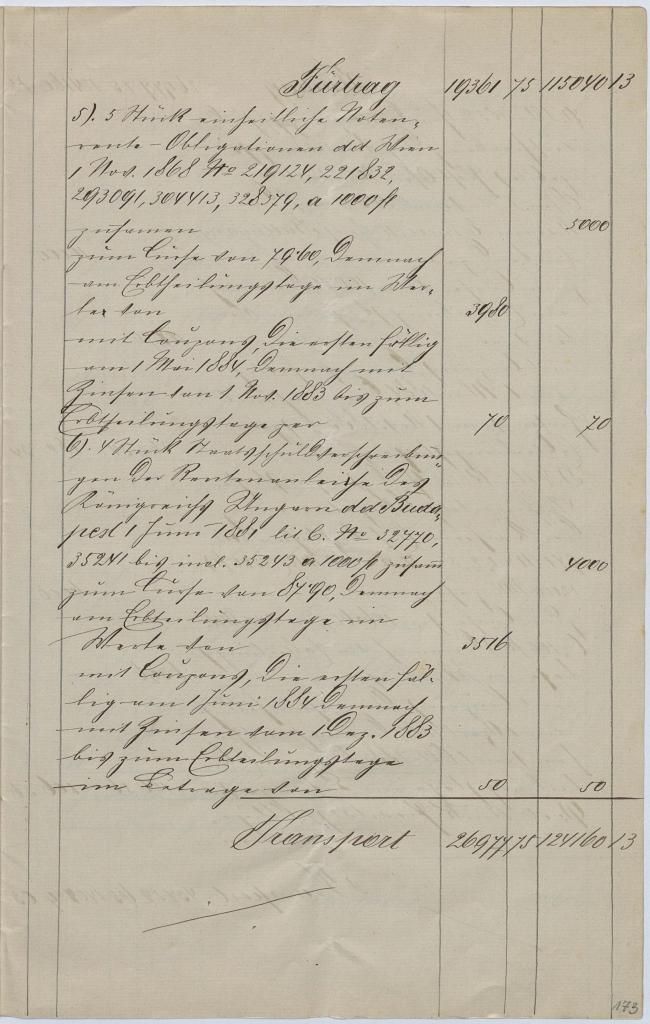 Fürtrag 19361 75 115040 13
5). 5 Stück einheitliche Noten-
rente-Obligationen dd Wien
1 Nov. 1868 No 219124, 221832,
293091, 304413, 328379, a 1000 fl
zusamen 5000
zum Curse von 79·60, demnach
am Erbtheilungstage im Wer-
te von 3980
mit Coupons, die ersten fällig
am 1 Mai 1884, demnach mit
Zinsen von 1 Nov. 1883 bis zum
Erbtheilungstage per 70 70
6). 4 Stück Staatsschuldverschreibun-
gen der Rentenanleihe des
Königreichs Ungarn dd Buda-
pest 1 Juni 1881 lit C. No 32770,
35241 bis incl. 35243 a 1000 fl zusam 4000
zum Curse von 87·90, demnach
am Erbteilungstage im
Werte von 3516
mit Coupons, die ersten fäl-
lig am 1 Juni 1884 demnach
mit Zinsen vom 1 Dez. 1883
bis zum Erbteilungstage
im Betrage von 50 50
Transport 26977 75 124160 13
173